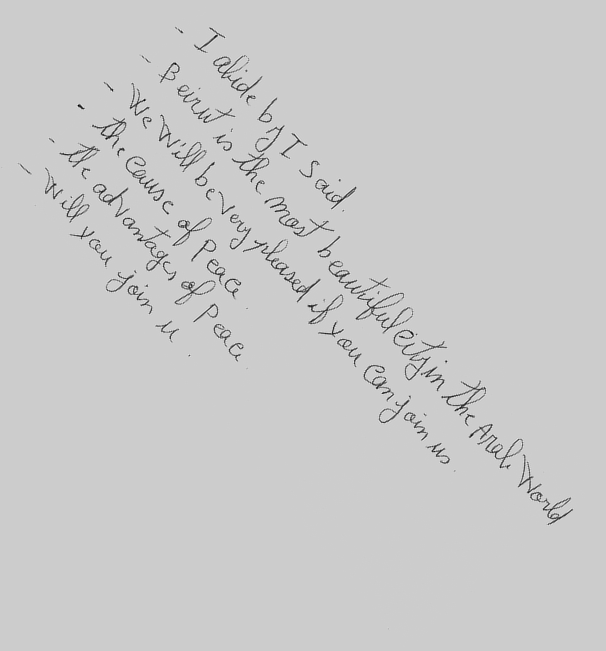 - I abide by I said.
- Beirut is the most beautiful city in the Arab World
- We will be very pleased if you can join us.
- the cause of Peace
- the advantages of Peace.
- Will you join u.